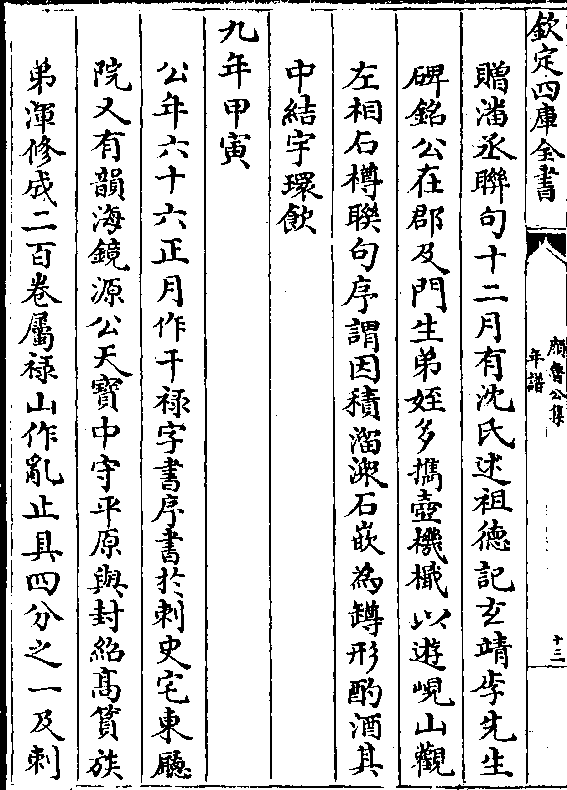 欽定四庫全書
顔魯公集
年譜
十三
贈潘丞聯句十二月有沈氏述祖德記玄靖李先生
碑銘公在郡及門生弟姪多攜壺檝檝以遊峴山觀
左相石樽聯句序謂因積溜潄石嵌為罇形酌酒其
中結宇環飲
九年甲寅
公年六十六正月作干禄字書序書於刺史宅東廳
院又有韻海鏡源公天寳中守平原與封紹高篔族
弟渾修成二百卷屬禄山作亂止具四分之一及刺